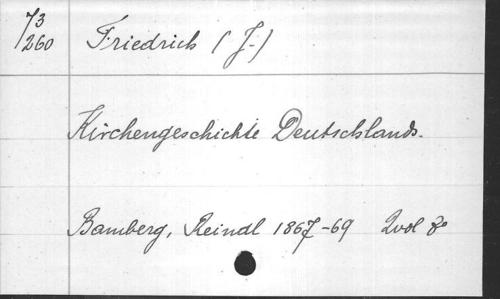 73
260
Friedrich (J.)
Kirchengeschichte Deutschlands.
Bamberg, Reindl 1867-69 2 vol 8o